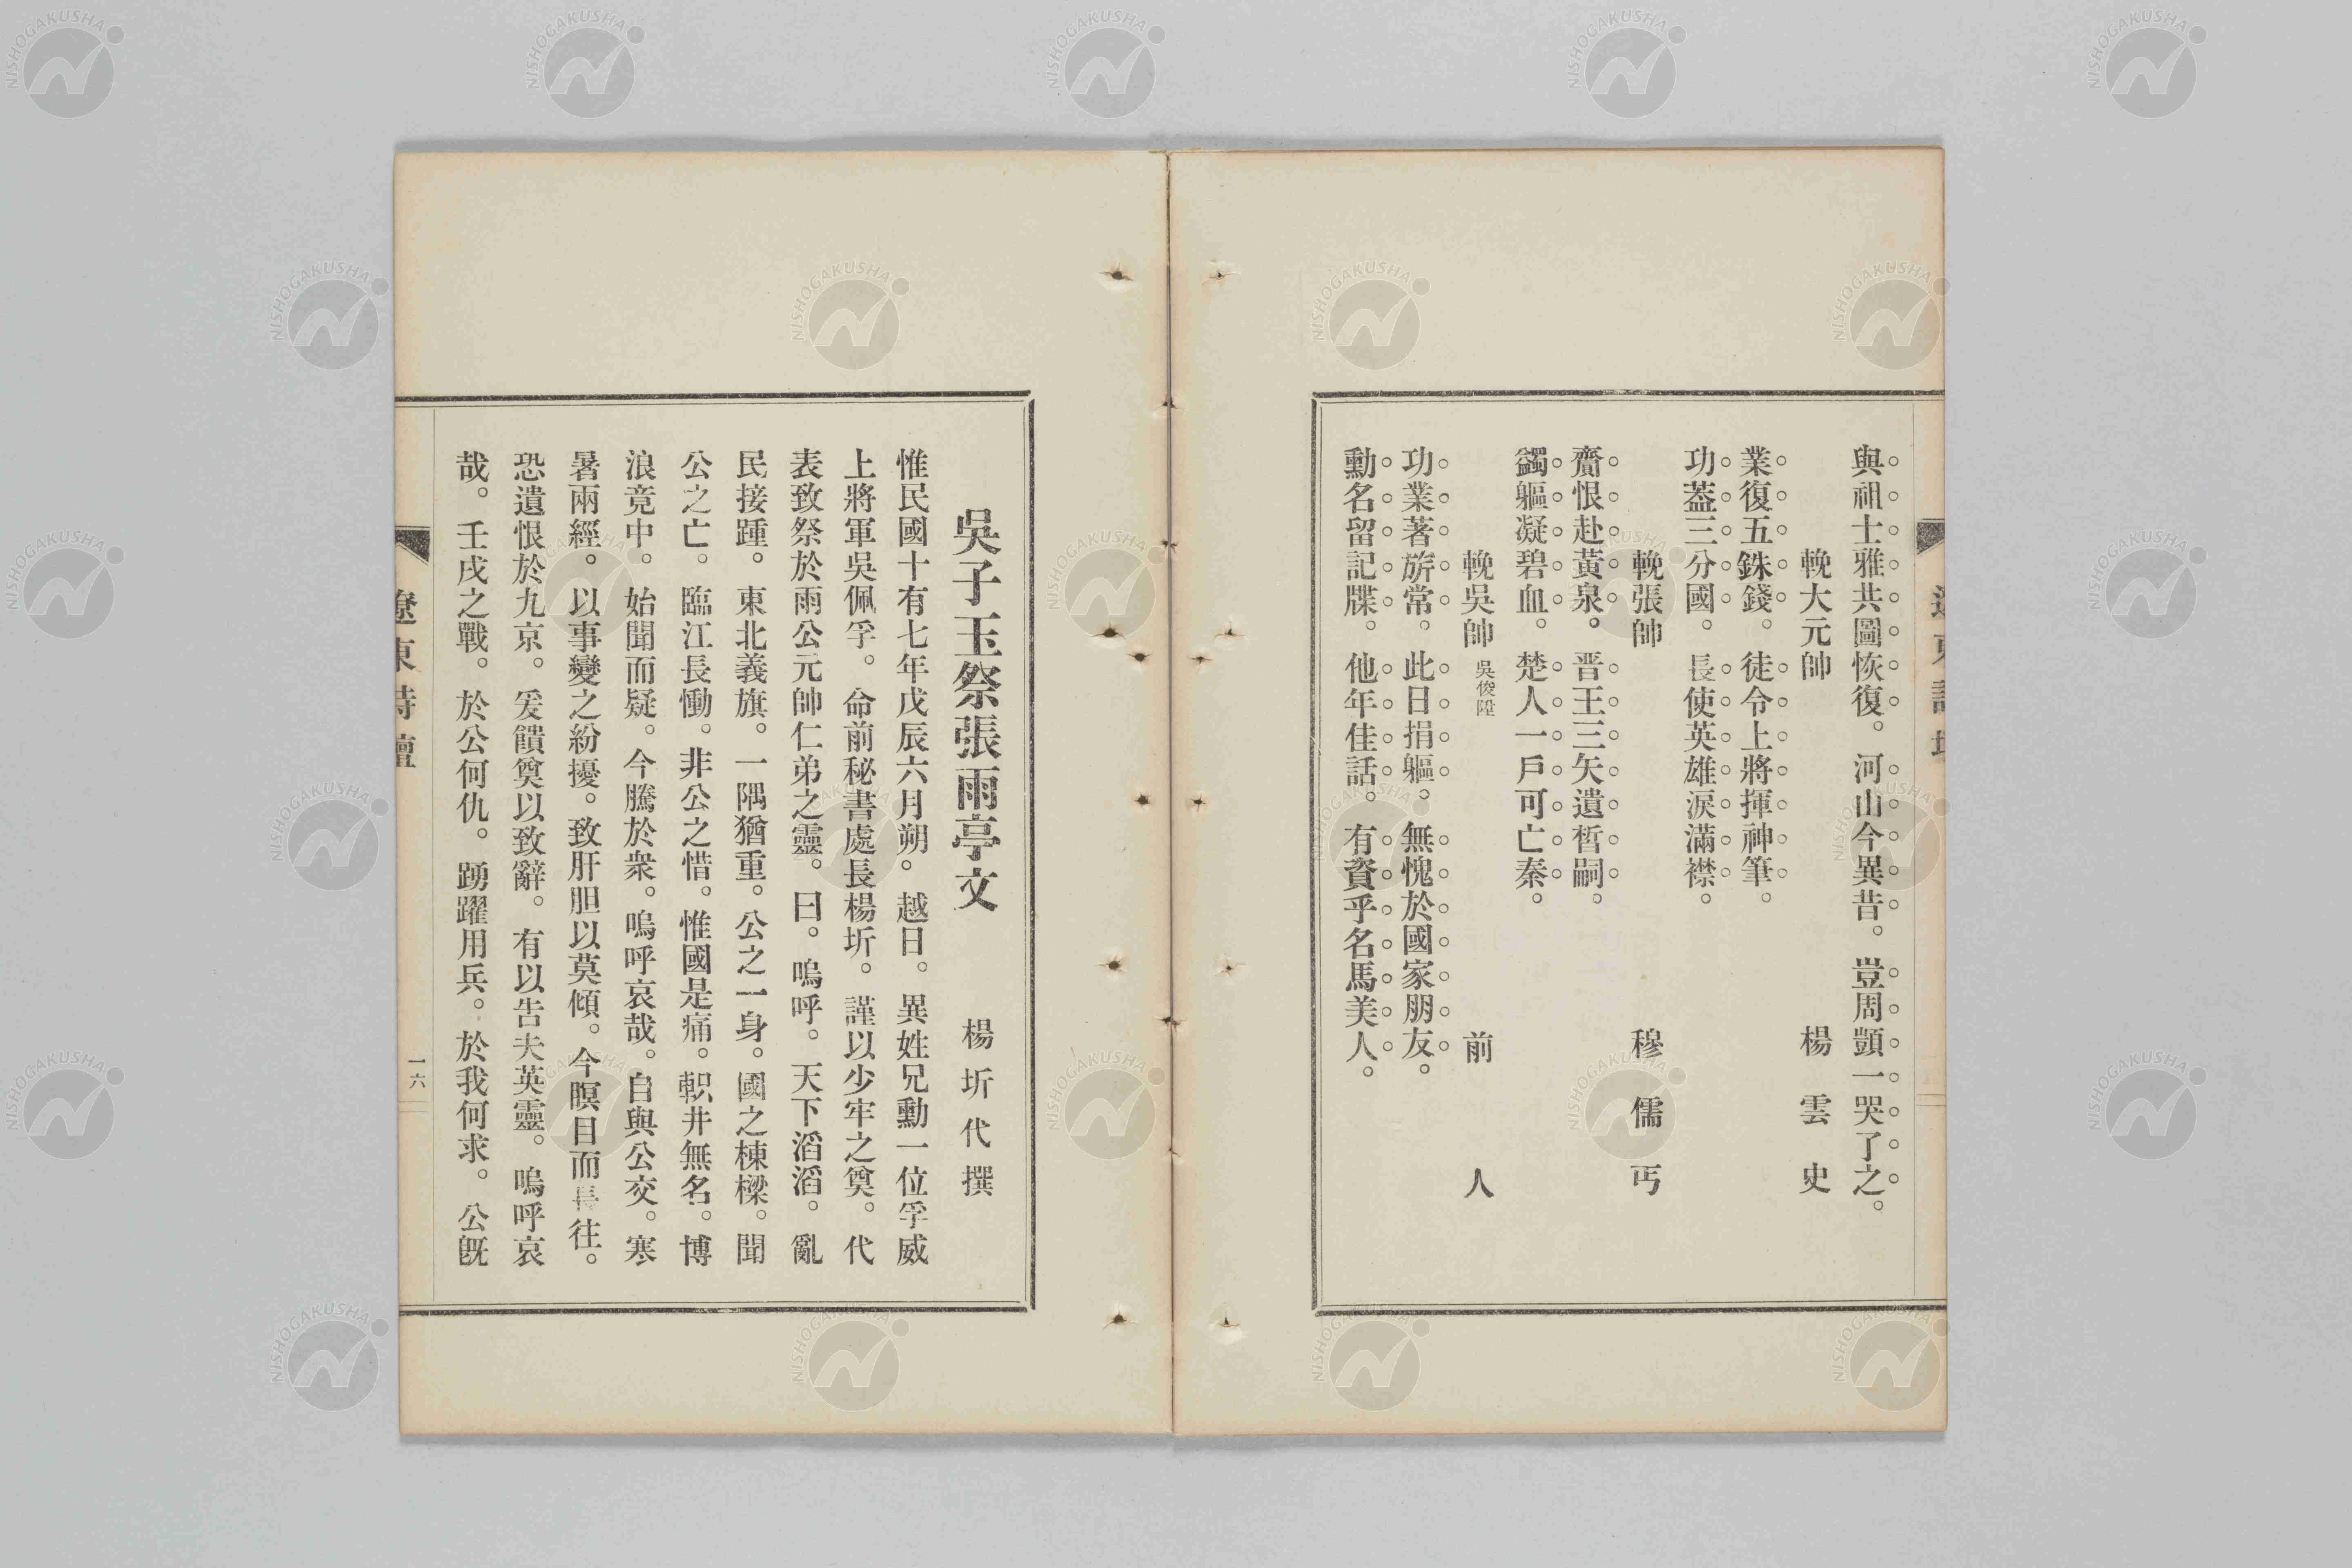 與祖士雅共圖恢復。河山今異昔。豈周顗一哭了之。
輓大元帥　楊雲史
業復五銖錢。徒令上將揮神筆。
功蓋三分國。長使英雄淚滿襟。
輓張帥　穆儒丐
齎恨赴黃泉。晋王三矢遺哲嗣。
蠲軀凝碧血。楚人一戶可亡秦。
輓吳帥 吳俊陞　前人
功業著旂常。此日捐軀。無愧於國家朋友。
勳名留記牒。他年佳話。有資乎名馬美人。
吳子玉祭張雨亭文　楊圻代撰
惟民國十有七年戊辰六月朔。越日。異姓兄勳一位孚威
上將軍吳佩孚。命前秘書處長楊圻。謹以少牢之奠。代
表致祭於雨公元帥仁弟之靈。曰。嗚呼。天下滔滔。亂
民接踵。東北義旗。一隅猶重。公之一身。國之棟樑。聞
公之亡。臨江長慟。非公之惜。惟國是痛。軹井無名。博
浪竟中。始聞而疑。今騰於衆。嗚呼哀哉。自與公交。寒
暑兩經。以事變之紛擾。致肝胆以莫傾。今瞑目而長往。
恐遺恨於九京。爰饋奠以致辭。有以告夫英靈。嗚呼哀
哉。壬戌之戰。於公何仇。踴躍用兵。於我何求。公旣
遼東詩壇
一六
NISHOGAKUSHA